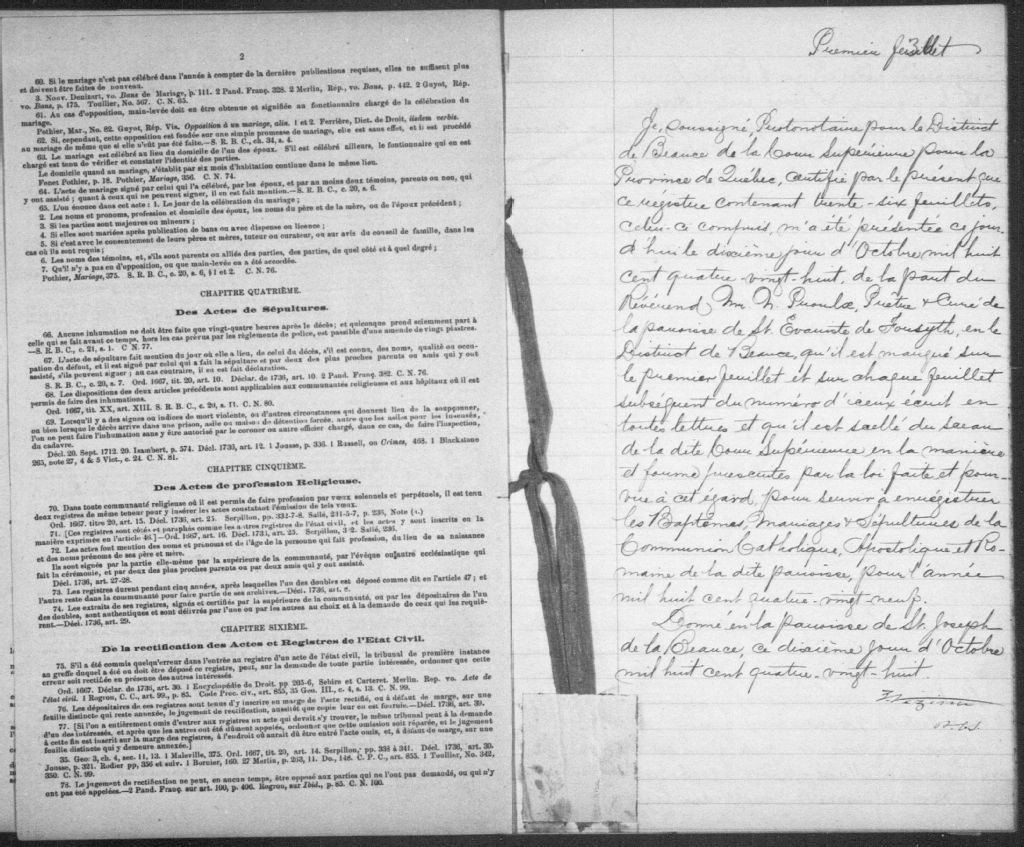 2
60. Si le mariage n'est pas célébré dans l'année à compter de la dernière publications requises, elles ne suffisent plus
et doivent être faites de nouveau.
3. Nouv. Denizart, vo. Bans de Mariage, p. 111. 2 Pand. Franç. 328. 2 Merlin, Rép., vo. Bans, p. 442. 2 Guyot, Rép.
vo. Bans, p. 175. Toullier, No. 567. C. N. 65.
61. Au cas d'opposition, main-levée doit en être obtenue et signifiée au fonctionnaire chargé de la célébration du
mariage.
Pothier, Mar., No. 82. Guyot, Rép. Vis. Opposition à un mariage, alin. 1 et 2. Ferrière, Dict. de Droit, iisdem verbis.
62. Si, cependant, cette opposition est fondée sur une simple promesse de mariage, elle est sans effet, et il est procédé
au mariage de même que si elle n'eût pas été faite.—S. R. B. C., ch. 34, s. 4.
63. Le mariage est célébré au lieu du domicile de l'un des époux. S'il est célébré ailleurs, le fontionnaire qui en est
chargé est tenu de vérifier et constater l'identité des parties.
Le domicile quand au mariage, s'établit par six mois d'habitation continue dans le même lieu.
Fenet Pothier, p. 18. Pothier, Mariage, 356. C. N. 74.
64. L'acte de mariage signé par celui qui l'a célébré, par les époux, et par au moins deux témoins, parents ou non, qui
y ont assisté ; quant à ceux qui ne peuvent signer, il en est fait mention.—S. R. B. C., c. 20, s. 6.
65. L'on énonce dans cet acte : 1. Le jour de la célébration du mariage ;
2. Les noms et pronoms, profession et domicile des époux, les noms du père et de la mère, ou de l'époux précédent ;
3. Si les parties sont majeures ou mineures ;
4. Si elles sont mariées après publication de bans ou avec dispense ou licence ;
5. Si c'est avec le consentement de leurs pères et mères, tuteur ou curateur, ou sur avis du conseil de famille, dans les
cas où ils sont requis ;
6. Les noms des témoins, et, s'ils sont parents ou alliés des parties, des parties, de quel côté et à quel degré ;
7. Qu'il n'y a pas eu d'opposition, ou que main-levée en a été accordée.
Pothier, Mariage, 375. S. R. B. C., c. 20, s. 6, §1 et 2. C. N. 76.
CHAPITRE QUATRIÈME.
Des Actes de Sépultures.
66. Aucune inhumation ne doit être faite que vingt-quatre heures après le décès ; et quiconque prend sciemment part à
celle qui se fait avant ce temps, hors les cas prévus par les règlements de police, est passible d'une amende de vingt piastres.
—S. R. B. C., c. 21, s. 1. C. N. 77.
67. L'acte de sépulture fait mention du jour où elle a lieu, de celui du décès, s'il est connu, des noms, qualité ou occu-
pation du défunt, et il est signé par celui qui a fait la sépulture et par deux des plus proches parents ou amis qui y ont
assisté, s'ils peuvent signer ; au cas contraire, il en est fait déclaration.
S. R. B. C., c. 20, s. 7. Ord. 1667, tit. 20, art. 10. Déclar. de 1736, art. 10. 2 Pand. Franç. 382. C. N. 76.
68. Les dispositions des deux articles précédents sont applicables aux communautés religieuses et aux hôpitaux où il est
permis de faire des inhumations.
Ord. 1667, tit. XX, art. XIII. S. R. B. C., c. 20, s. 11. C. N. 80.
69. Lorsqu'il y a des signes ou indices de mort violente, ou d'autres circonstances qui donnent lieu de la soupçonner,
ou bien lorsque le décès arrive dans une prison, asile ou maison de détention forcée, autre que les asiles pour les insensés,
l'on ne peut faire l'inhumation sans y être autorisé par le coroner ou autre officier chargé, dans ce cas, de faire l'inspection,
du cadavre.
Décl. 20. Sept. 1712. 20. Isambert, p. 574. Décl. 1736, art. 12. 1 Jousse, p. 336. 1 Russell, on Crimes, 468. 1 Blackstone
265, note 27, 4 & 5 Vict., c. 24. C. N. 81.
CHAPITRE CINQUIÈME.
Des Actes de profession Religieuse.
70. Dans toute communauté religieuse où il est permis de faire profession par vœux solennels et perpétuels, il est tenu
deux registres de même teneur pour y insérer les actes constatant l'émission de tels vœux.
Ord. 1667, titre 20, art. 15. Décl. 1736, art. 25. Serpillon, pp. 332-7-8. Sallé, 231-5-7, p. 236, Note (1.)
71. [Ces registres sont côtés et paraphés comme les autres registres de l'état civil, et les actes y sont inscrits en la
manière exprimée en l'article 46.]—Ord. 1667, art. 16. Décl. 1736, art. 25. Serpillon, 3-2. Sallé, 236.
72. Les actes font mention des noms et prénoms et de l'âge de la personne qui fait profession, du lieu de sa naissance
et des noms prénoms de ses père et mère.
Ils sont signés par la partie elle-même par la supérieure de la communauté, par l'évêque ou autre ecclésiastique qui
fait la cérémonie, et par deux des plus proches parents ou par deux amis qui y ont assisté.
Décl. 1736, art. 27-28.
73. Les registres durent pendant cinq années, après lesquelles l'un des doubles est déposé comme dit en l'article 47 ; et
l'autre reste dans la communauté pour faire partie de ses archives.—Décl. 1736, art.
74. Les extraits de ses registres, signés et certifiés par la supérieure de la communauté, ou par les dépositaires de l'un
des doubles, sont authentiques et sont délivrés par l'une ou par les autres au choix et à la demande de ceux qui les requiè-
rent.—Décl. 1736, art. 29.
CHAPITRE SIXIÈME.
De la rectification des Actes et Registres de l'Etat Civil.
75. S'il a été commis quelqu'erreur dans l'entrée au registre d'un acte de l'état civil, le tribunal de première instance
au greffe duquel a été ou doit être déposé ce registre, peut, sur la demande de toute partie intéressée, ordonner que cette
erreur soit rectifiée en présence des autres intéressés.
Ord. 1667. Déclar. de 1736, art. 30. 1 Encyclopédie de Droit. pp. 265-6, Sebire et Carteret. Merlin. Rep. vo. Acte de
l'état civil. 1 Rogron, C. C., art. 99., p. 85. Code Proc. civ., art. 855, 35 Geo. III., c. 4, s. 13. C. N. 99.
76. Les dépositaires de ces registres sont tenus d'y inscrire en marge de l'acte rectifié, ou à défaut de marge, sur une
feuille distincte qui reste annexée, le jugement de rectification, aussitôt que copie leur en est fournie.—Décl. 1736, art. 39.
77. [Si l'on a entièrement omis d'entrer aux registres un acte qui devait s'y trouver, le même tribunal peut à la demande
d'un des intéressés, et après que les autres ont été dûment appelés, ordonner que cette omission soit réparée, et le jugement
à cette fin est inscrit sur la marge des registres, à l'endroit où aurait dû être entré l'acte omis, et, à défaut de marge, sur une
feuille distincte qui y demeure annexée.]
35. Geo: 3, ch. 4, sec. 11, 13. 1 Maleville, 375. Ord. 1667, tit. 20, art. 14. Serpillon, pp. 338 à 341. Décl. 1736, art. 30.
Jousse, p. 321. Rodier pp, 356 et suiv. 1 Bornier, 160. 27 Merlin, p. 263, 11. Do., 146. C. P. C., art. 855. 1 Toullier, No. 342,
350. C. N. 99.
78. Le jugement de rectification ne peut, en aucun temps, être opposé aux parties qui ne l'ont pas demandé, ou qui n'y
ont pas été appelées.—2 Pand. Franç. sur art. 100, p. 406. Rogron, sur Ibid., p. 85. C. N. 100.
Premier feuillet
Je, soussigné, Protonotaire pour le District
de Beauce de la Cour Supérieure pour la
Province de Québec, certifie par le présent que
ce régistre contenant trente-six feuillets,
celui-ci compris, m'a été présenté ce jour-
d'hui le dixième jour d'Octobre mil huit
cent quatre-vingt-huit, de la part du
Révérend Mr N. Proulx, Prêtre & Curé de
la paroisse de St. Evariste de Forsyth, en le
District de Beauce, qu'il est marqué sur
le premier feuillet et sur chaque feuillet
subséquent du numéro d'iceux écrit en
toutes lettres et qu'il est scellé du sceau
de la dite Cour Supérieure en la manière
et forme prescrites par la loi faite et pour-
vue à cet égard, pour servir à enregistrer
les Baptêmes, Mariages & Sépultures de la
Communion Catholique, Apostolique et Ro-
maine de la dite paroisse, pour l'année
mil huit cent quatre-vingt-neuf.
Donné en la paroisse de St. Joseph
de la Beauce, ce dixième jour d'Octobre
mil huit cent quatre-vingt-huit